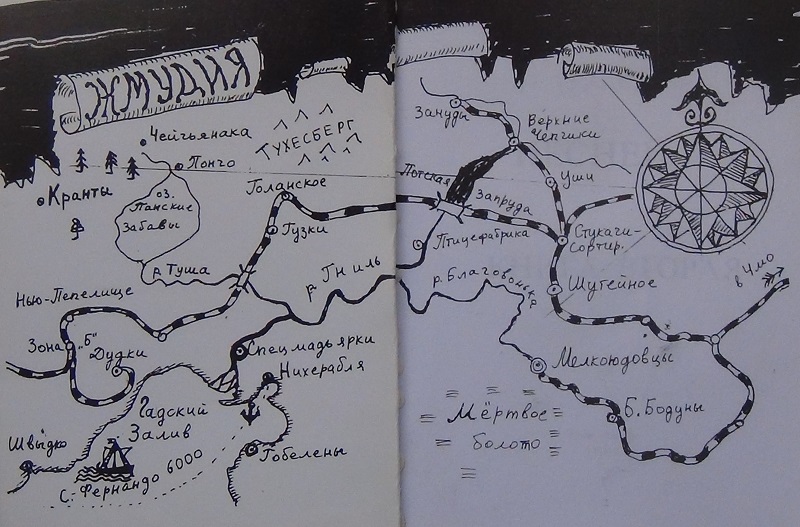 ЖМУДИЯ
Чейчьянака
Пончо
Кранты
ТУХЕСБЕРГ
оз.
Панские
Забавы
р. Туша
Голанское
Гузки
р. Гниль
Нью-Пепелище
Зона „Б"
Дудки
Спецмадьярки
Нихерабля
Гадский
Залив
Швыдко
С.-Фернандо 6000
Гобелены
Зануды
Верхние
Чепчики
Уши
Потская
Запруда
Птицефабрика
Стукачи-
Сортир.
р. Благовонька
Шутейное
в Чмо
Мелкоюдовцы
Б. Бодуны
Мёртвое
болото